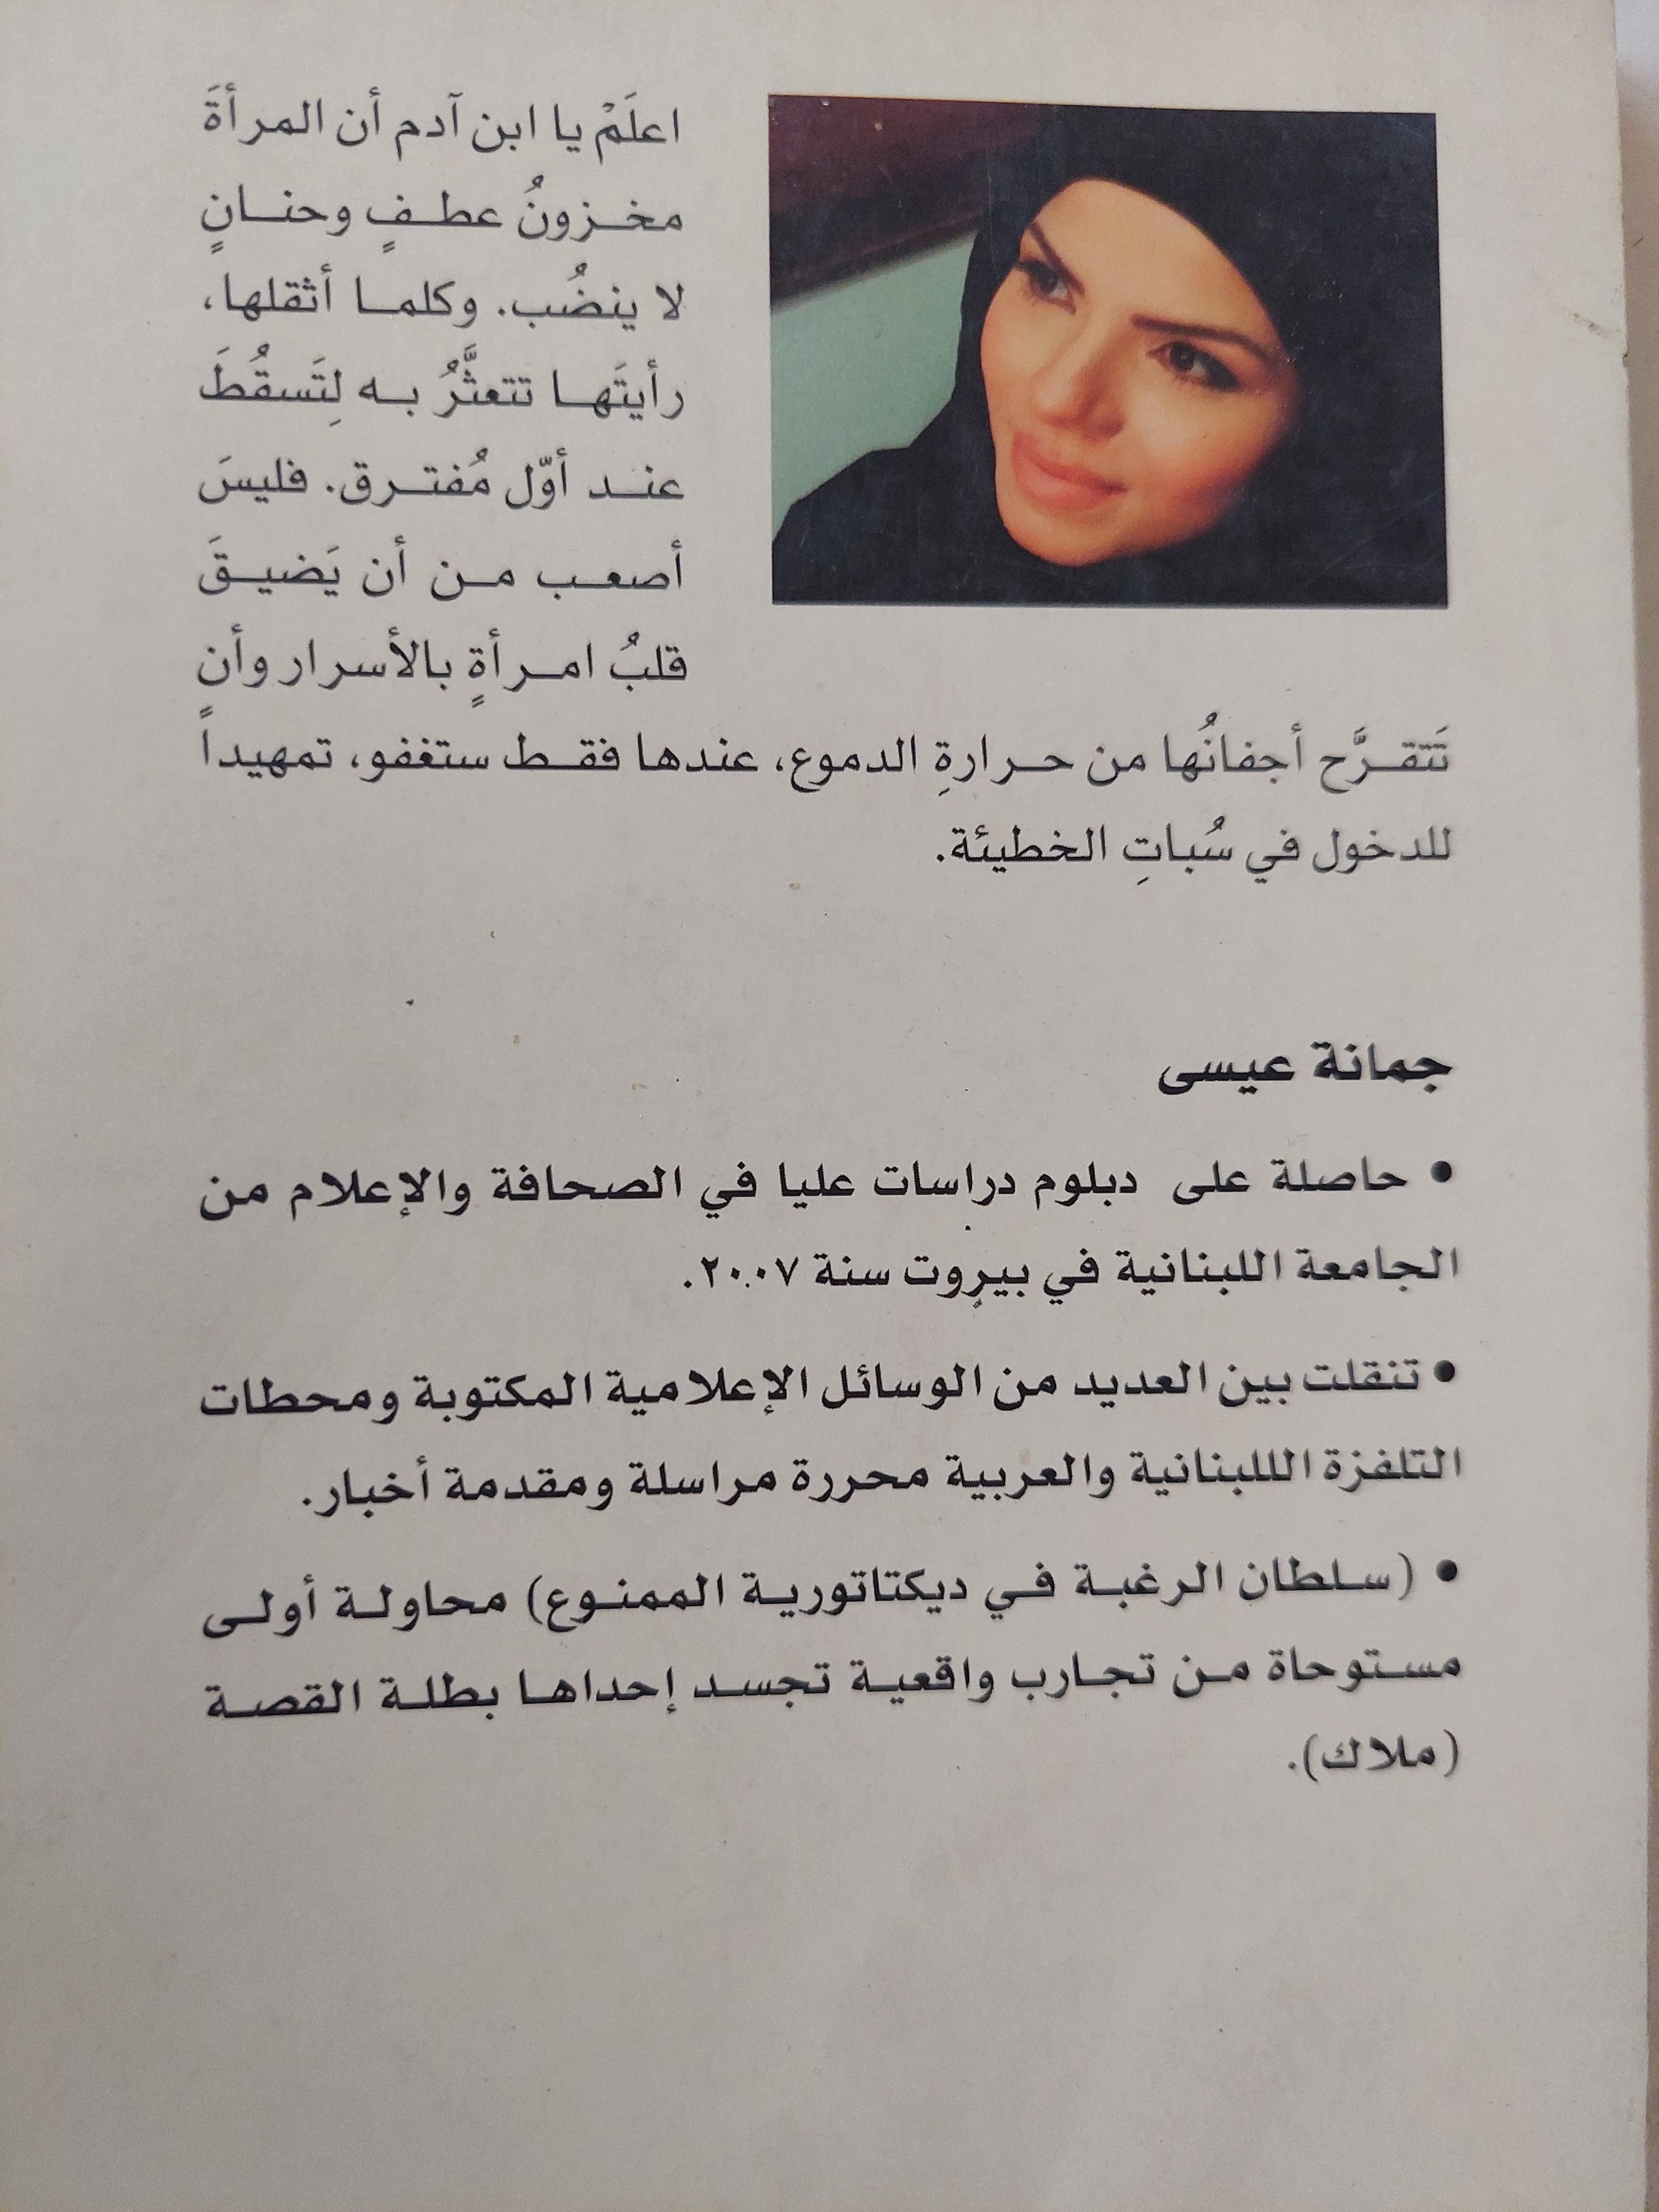 اعلَمْ يا ابن آدم أن المرأةَ
مخزونُ عطفٍ وحنانٍ
لا ينضُب. وكلما أثقلها،
رأيتَها تتعثَّرُ به لِتَسقُطَ
عند أوّل مُفترق. فليسَ
أصعب من أن يَضيقَ
قلبُ امرأةٍ بالأسرار وأن
تَتقرَّح أجفانُها من حرارةِ الدموع، عندها فقط ستغفو، تمهيداً
للدخول في سُباتِ الخطيئة.
جمانة عيسى
• حاصلة على دبلوم دراسات عليا في الصحافة والإعلام من
الجامعة اللبنانية في بيروت سنة ٢٠٠٧.
• تنقلت بين العديد من الوسائل الإعلامية المكتوبة ومحطات
التلفزة الللبنانية والعربية محررة مراسلة ومقدمة أخبار.
• (سلطان الرغبة في ديكتاتورية الممنوع) محاولة أولى
مستوحاة من تجارب واقعية تجسد إحداها بطلة القصة
(ملاك).